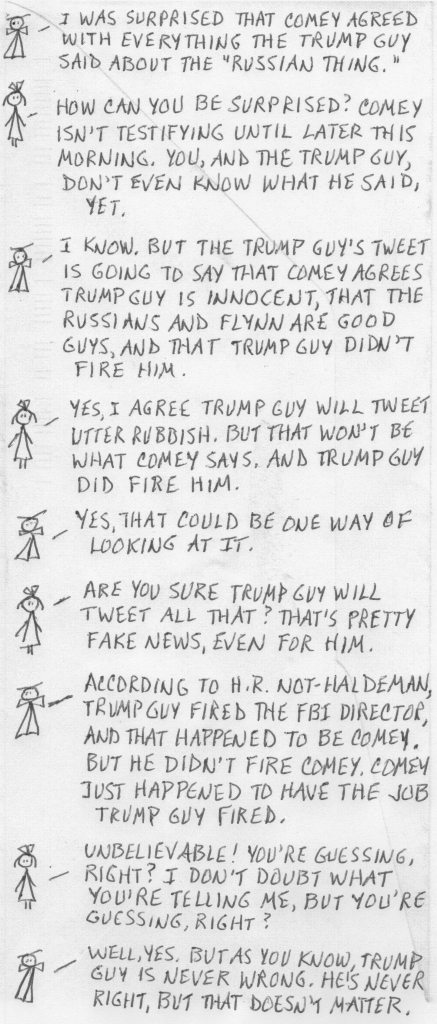 I WAS SURPRISED THAT COMEY AGREED
WITH EVERYTHING THE TRUMP GUY
SAID ABOUT THE "RUSSIAN THING."
HOW CAN YOU BE SURPRISED? COMEY
ISN'T TESTIFYING UNTIL LATER THIS
MORNING. YOU, AND THE TRUMP GUY,
DON'T EVEN KNOW WHAT HE SAID,
YET.
I KNOW. BUT THE TRUMP GUY'S TWEET
IS GOING TO SAY THAT COMEY AGREES
TRUMP GUY IS INNOCENT, THAT THE
RUSSIANS AND FLYNN ARE GOOD
GUYS, AND THAT TRUMP GUY DIDN'T
FIRE HIM.
YES, I AGREE TRUMP GUY WILL TWEET
UTTER RUBBISH. BUT THAT WON'T BE
WHAT COMEY SAYS. AND TRUMP GUY
DID FIRE HIM.
YES, THAT COULD BE ONE WAY OF
LOOKING AT IT.
ARE YOU SURE TRUMP GUY WILL
TWEET ALL THAT? THAT'S PRETTY
FAKE NEWS, EVEN FOR HIM.
ACCORDING TO H.R. NOT-HALDEMAN,
TRUMP GUY FIRED THE FBI DIRECTOR,
AND THAT HAPPENED TO BE COMEY.
BUT HE DIDN'T FIRE COMEY. COMEY
JUST HAPPENED TO HAVE THE JOB
TRUMP GUY FIRED.
UNBELIEVABLE! YOU'RE GUESSING,
RIGHT? I DON'T DOUBT WHAT
YOU'RE TELLING ME, BUT YOU'RE
GUESSING, RIGHT?
WELL, YES. BUT AS YOU KNOW, TRUMP
GUY IS NEVER WRONG. HE'S NEVER
RIGHT, BUT THAT DOESN'T MATTER.